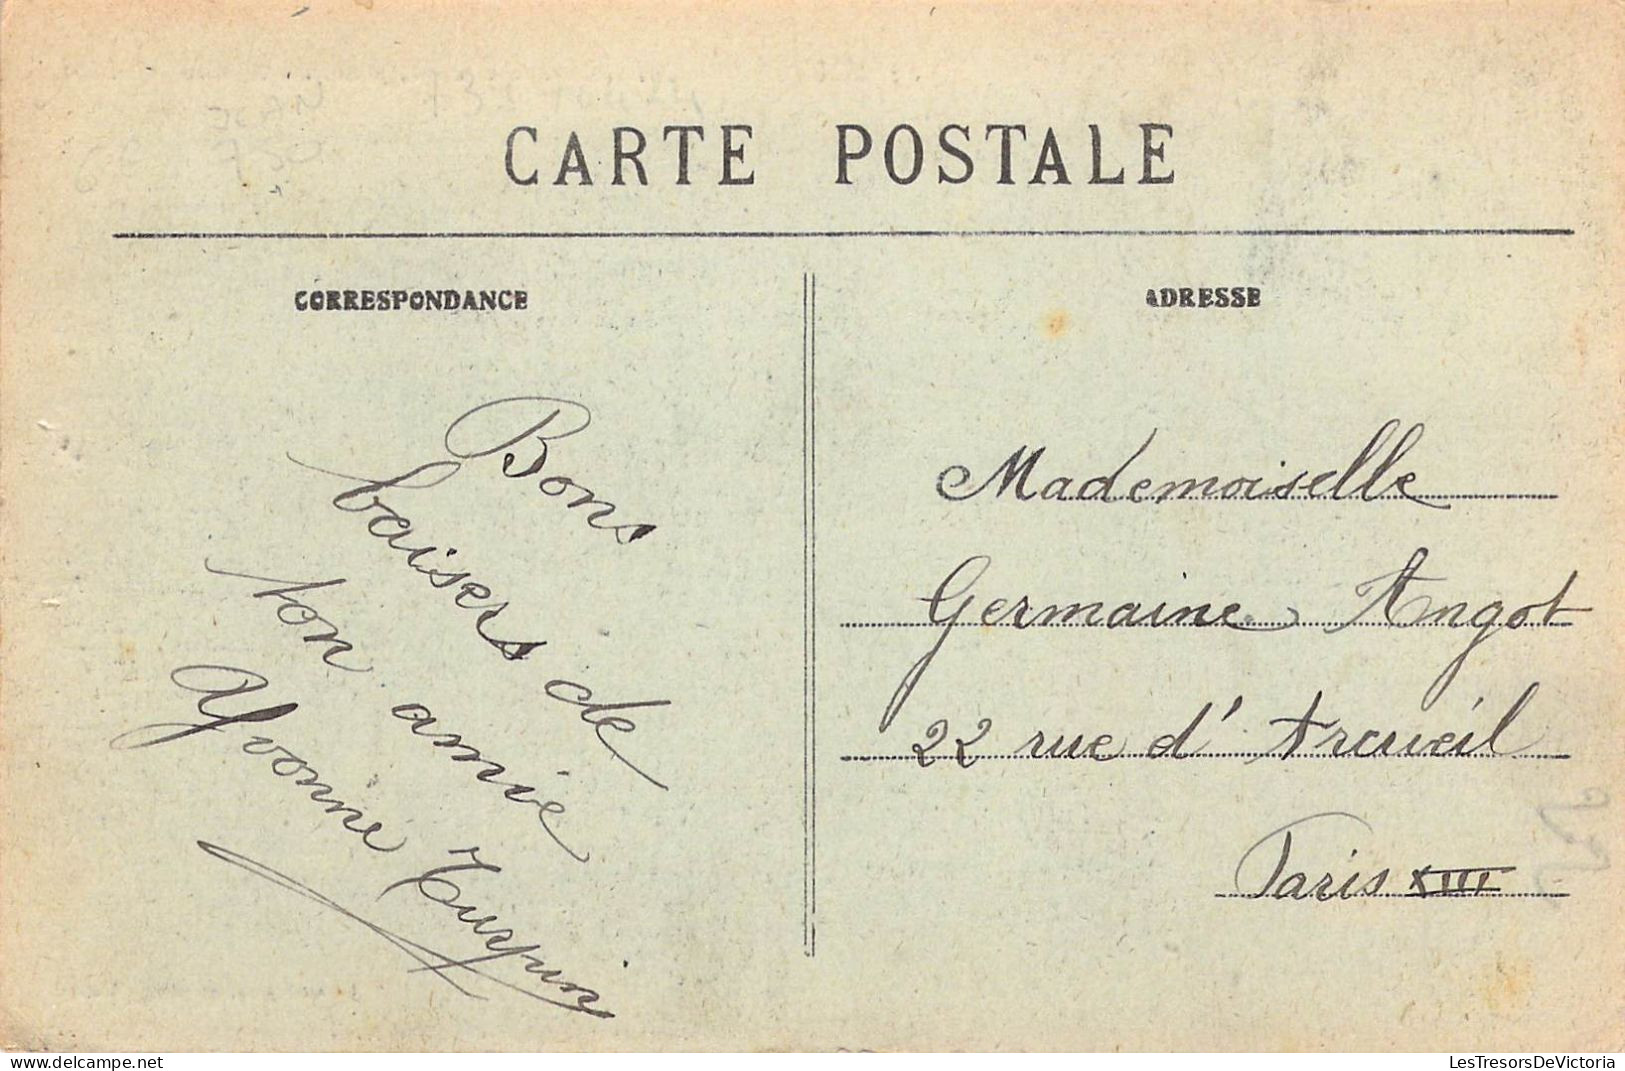 CARTE POSTALE
CORRESPONDANCE
Bons
baisers de
ton amie
Yvonne Turpin
ADRESSE
Mademoiselle
Germaine Angot
22 rue d'Arcueil
Paris XIII
www.delcampe.net
LesTresorsDeVictoria